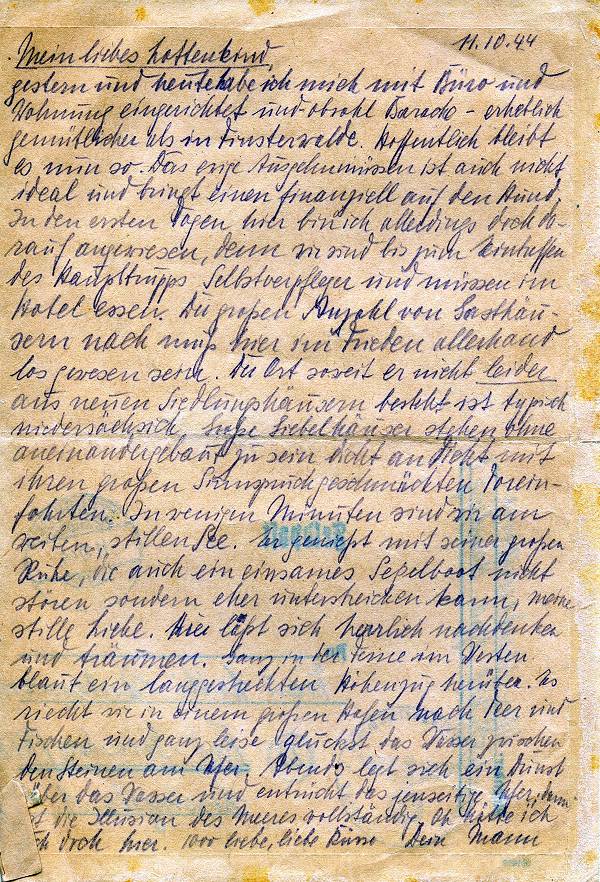 11.10.44
Mein liebes Lottenkind,
gestern und heute habe ich mich mit Büro und
Wohnung eingerichtet und obwohl Baracke - erheblich
gemütlicher als in Finsterwalde. Hoffentlich bleibt
es nun so. Das ewige Ausgehenmüssen ist auch nicht
ideal und bringt einen finanziell auf den Hund.
In den ersten Tagen hier bin ich allerdings doch da-
rauf angewiesen, denn wir sind bis zum Eintreffen
des Haupttrupps Selbstverpfleger und müssen im
Hotel essen. Der großen Anzahl von Gasthäu-
sern nach muß hier im Frieden allerhand
los gewesen sein. Der Ort soweit er nicht leider
aus neuen Siedlungshäusern besteht ist typisch
niedersächsisch. Große Giebelhäuser stehen ohne
aneinandergebaut zu sein dicht an dicht mit
ihren großen Sinnspruchgeschmückten Torein-
fahrten. In wenigen Minuten sind wir am
weiten, stillen See. Er genießt mit seiner großen
Ruhe, die auch ein einsames Segelboot nicht
stören sondern eher unterstreichen kann, meine
stille Liebe. Hier läßt sich herrlich nachdenken
und träumen. Ganz in der Ferne im Westen
blaut ein langgestreckten Höhenzug herüber. Es
riecht wie in einem großen Hafen nach Teer und
Fischen und ganz leise gluckst das Wasser zwischen
den Steinen am Ufer. Abends legt sich ein Dunst
über das Wasser und entrückt das jenseitige Ufer, dann
ist die Illusion des Meeres vollständig. Oh hätte ich
Dich doch hier. 1000 liebe, liebe Küsse Dein Mann